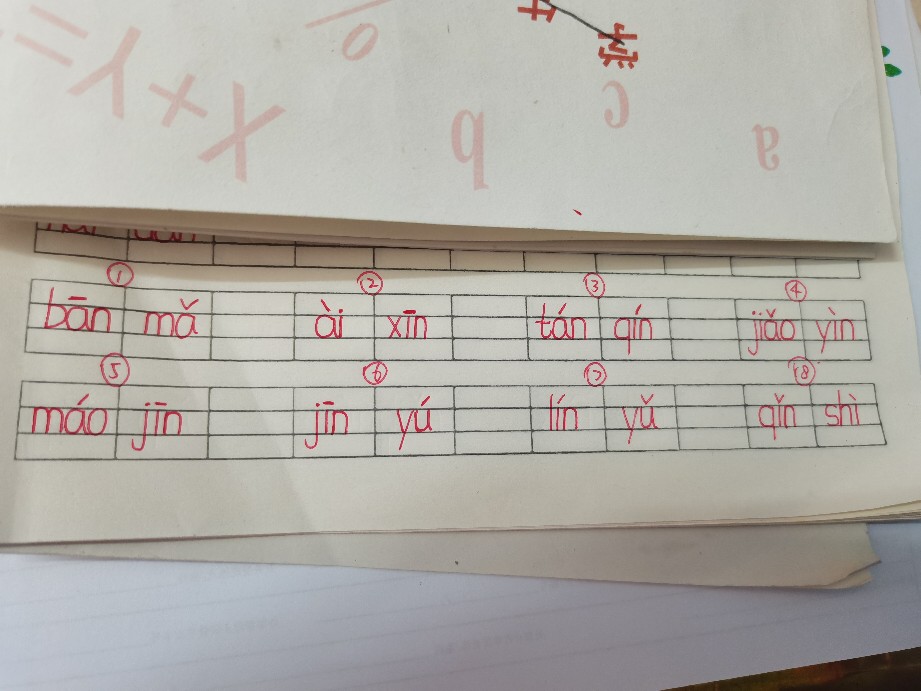 X+Y=
a
b
c
①
②
③
④
bān mǎ
ài xīn
tán qín
jiǎo yìn
⑤
⑥
⑦
⑧
máo jīn
jīn yú
lín yǔ
qǐn shì